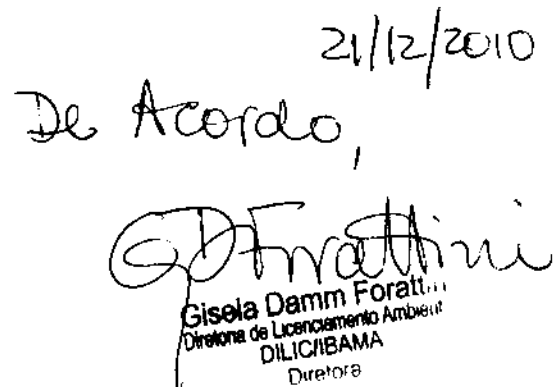 21/12/2010
De Acordo,
GDForattini
Gisela Damm Foratt
Diretoria de Licenciamento Ambient
DILIC/IBAMA
Diretora